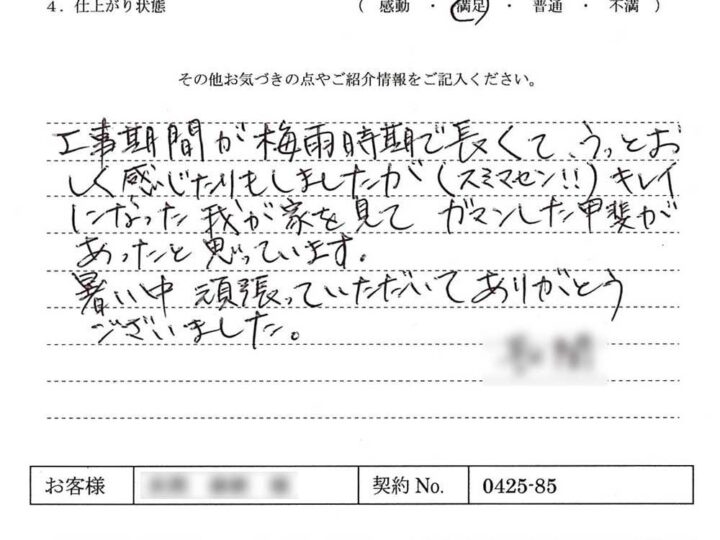 4．仕上がり状態 （ 感動 ・ 満足 ・ 普通 ・ 不満 ）
その他お気づきの点やご紹介情報をご記入ください。
工事期間が梅雨時期で長くて、うっとお
しく感じたりもしましたが（スミマセン!!）キレイ
になった我が家を見て ガマンした甲斐が
あったと思っています。
暑い中 頑張っていただいてありがとう
ございました。
お客様 契約No. 0425-85